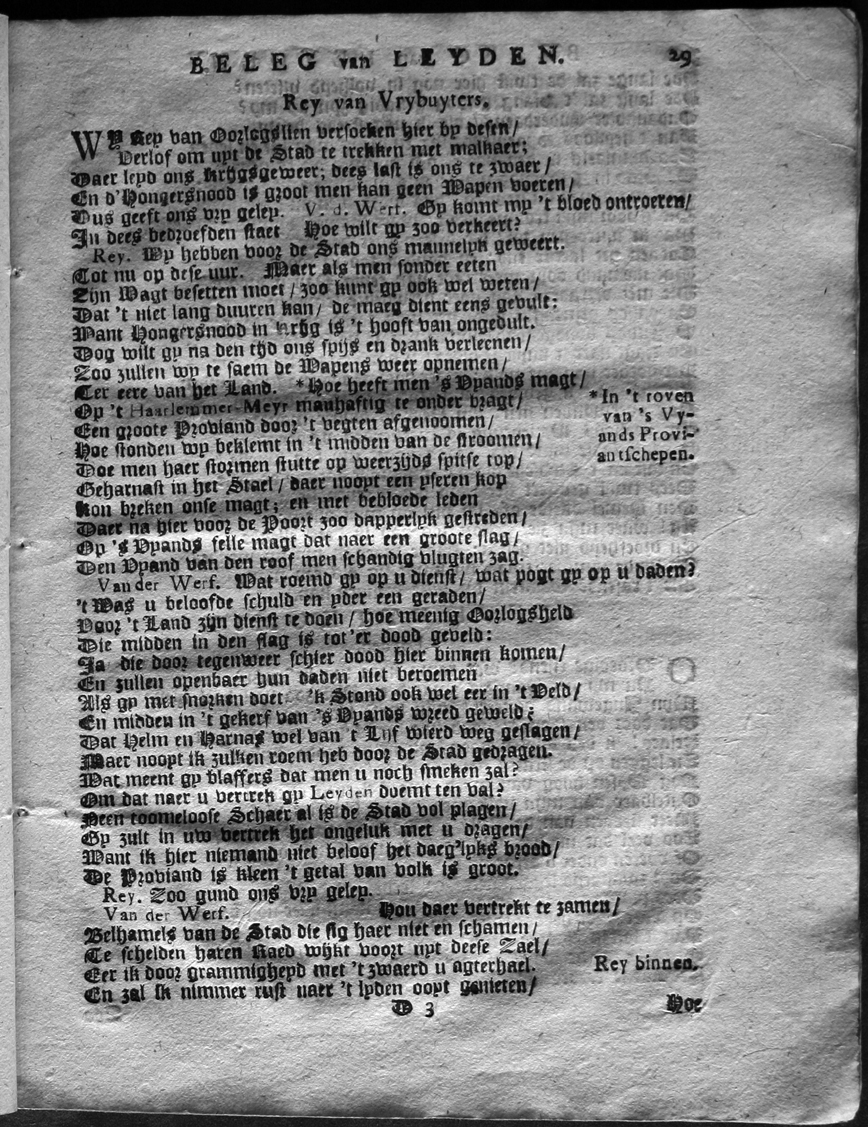 BELEG van LEYDEN. 29
Rey van Vrybuyters.
WY Rey van Oorlogslien versoeken hier by desen/
Verlof om uyt de Stad te trekken met malkaer;
Daer leyd ons krijgsgeweer; dees last is ons te zwaer/
En d'Hongersnood is groot men kan geen Wapen voeren/
Dus geeft ons vry geley. V. d. Werf. Gy komt my 't bloed ontroeren/
In dees bedroefden staet Hoe wilt gy zoo verkeert?
Rey. Wy hebben voor de Stad ons mannelyk geweert.
Tot nu op dese uur. Maer als men sonder eeten
Zijn Wagt besetten moet/ zoo kunt gy ook wel weten/
Dat 't niet lang duuren kan/ de maeg dient eens gevult:
Want Hongersnood in krijg is 't hooft van ongedult.
Dog wilt gy na den tijd ons spijs en drank verleenen/
Zoo zullen wy te saem de Wapens weer opnemen/
Ter eere van het Land. *Hoe heeft men 's Vyands magt/
Op 't Haarlemmer-Meyr manhaftig te onder bragt/
*In 't roven
van 's Vy-
ands Provi-
antschepen.
Een groote Proviand door 't vegten afgenoomen/
Hoe stonden wy beklemt in 't midden van de stroomen/
Doe men haer stormen stutte op weerzijds spitse top/
Geharnast in het Stael/ daer noopt een yseren kop
Kon breken onse magt; en met bebloede leden
Daer na hier voor de Poort zoo dapperlyk gestreden/
Op 's Vyands felle magt dat naer een groote slag/
Den Vyand van den roof men schandig vlugten zag.
Van der Werf. Wat roemd gy op u dienst/ wat pogt gy op u daden?
't Was u beloofde schuld en yder een geraden/
Voor 't Land zijn dienst te doen/ hoe meenig Oorlogsheld
Die midden in den slag is tot'er dood geveld:
Ja die door tegenweer schier dood hier binnen komen/
En zullen openbaer hun daden niet beroemen
Als gy met snorken doet. 'k Stond ook wel eer in 't Veld/
En midden in 't gekerf van 's Vyands wreed geweld;
Dat Helm en Harnas wel van 't Lijf wierd weg geslagen/
Maer noopt ik zulken roem heb door de Stad gedragen.
Wat meent gy blaffers dat men u noch smeken zal?
Om dat naer u vertrek gy Leyden doemt ten val?
Neen toomeloose Schaer al is de Stad vol plagen/
Gy zult in uw vertrek het ongeluk met u dragen/
Want ik hier niemand niet beloof het daeg'lyks brood/
De Proviand is kleen 't getal van volk is groot.
Rey. Zoo gund ons vry geley.
Van der Werf. Hou daer vertrekt te zamen/
Belhamels van de Stad die sig haer niet en schamen/
Te schelden haren Raed wijkt voort uyt deese Zael/
Eer ik door grammigheyd met 't zwaerd u agterhael. Rey binnen.
En zal ik nimmer rust naer 't lyden oopt genieten/
D 3 Hoe